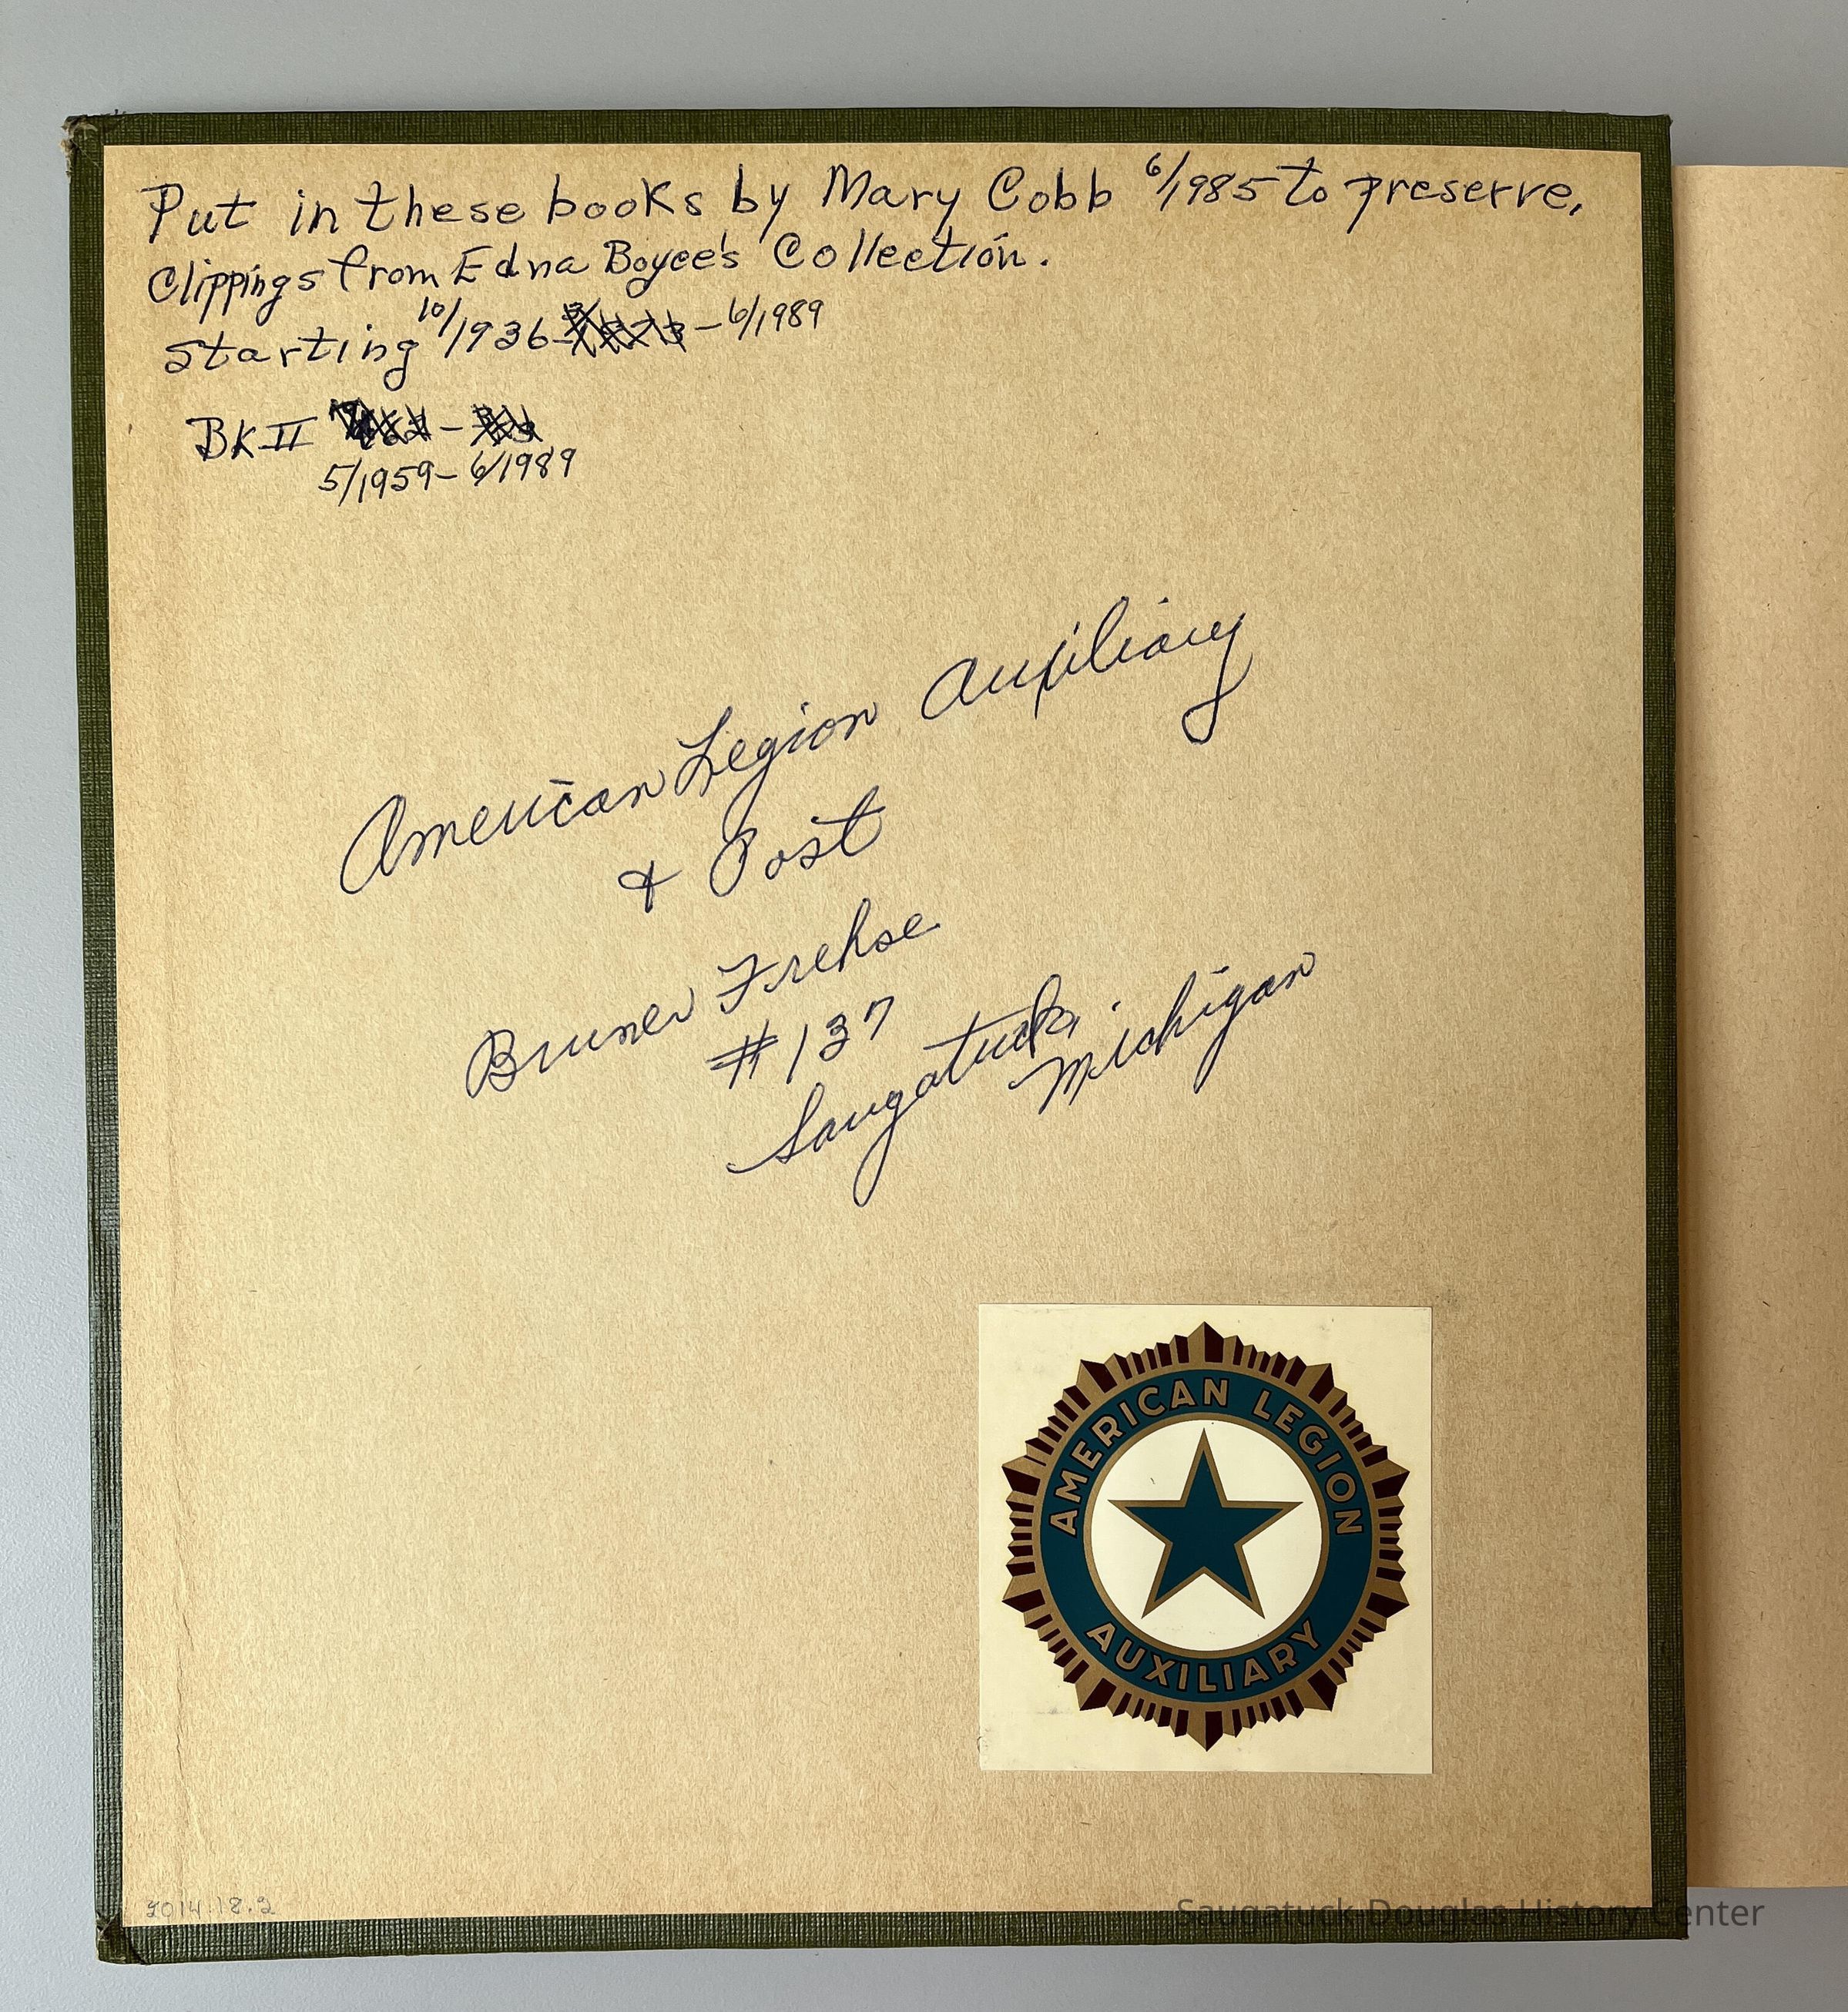 Put in these books by Mary Cobb 6/1985 to preserve,
Clippings from Edna Boyce's Collection.
starting 10/1936 - 6/1989
BK II -
5/1959 - 6/1989
American Legion Auxiliary
& Post
Bruner Frehse
#137
Saugatuck,
Michigan
AMERICAN LEGION
AUXILIARY
2014.18.2
Saugatuck Douglas History Center